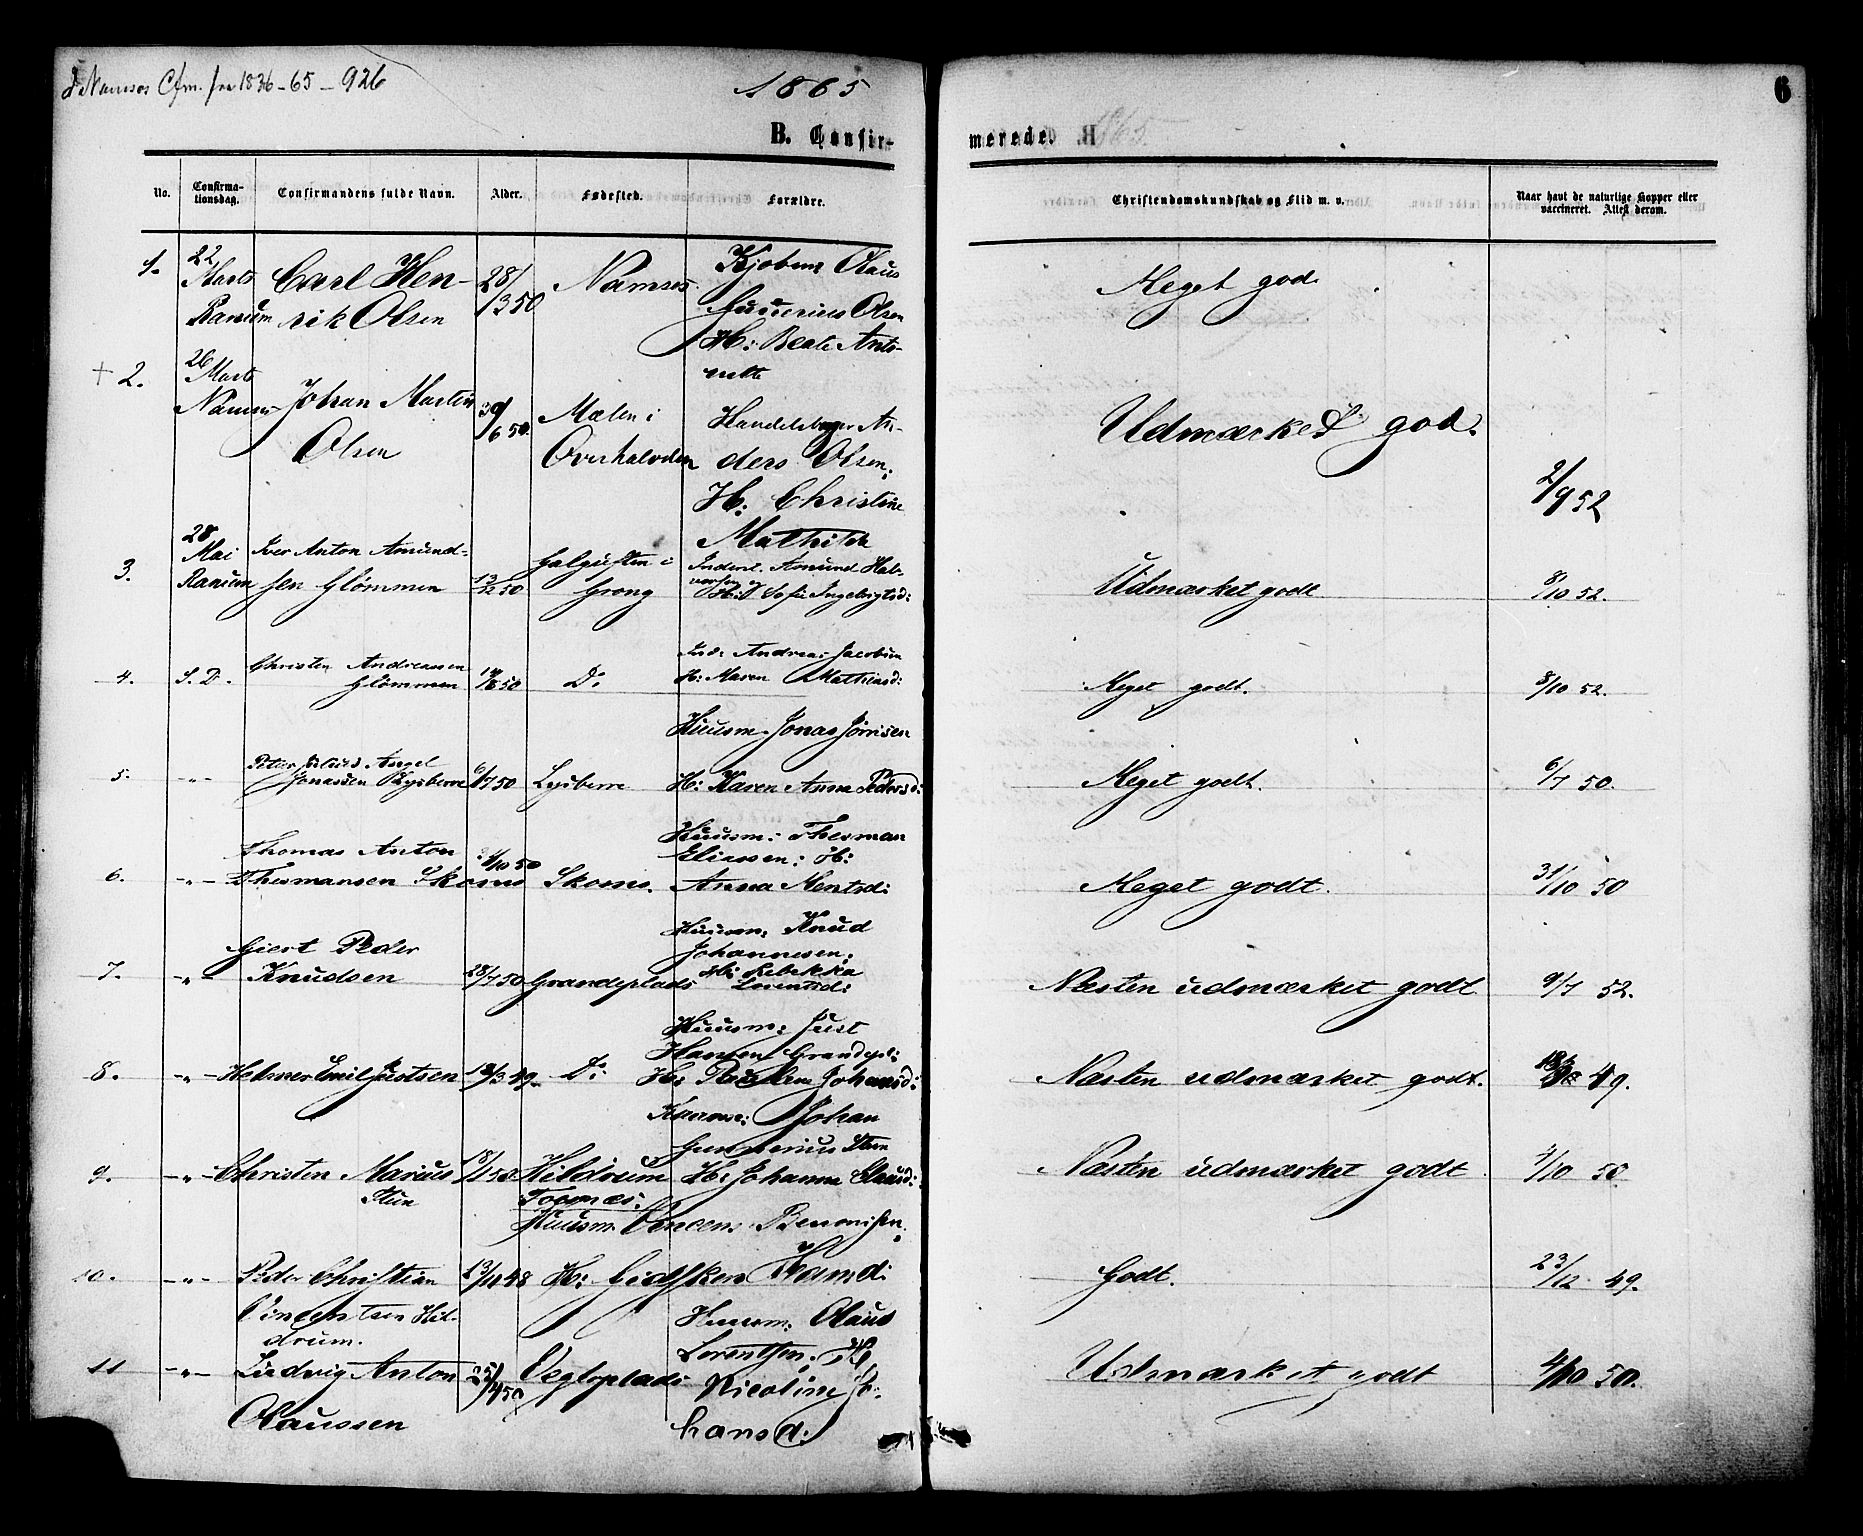 I Namsos Cfm. fra 1836-65-926
1865
6
B. Confir-
merede.
No.
Confirma-
tionsdag.
Confirmandens fulde Navn.
Alder.
Fødested.
Forældre.
Christendomskundskab og Flid m. v.
Naar havt de naturlige Kopper eller
vaccineret. Attest derom.
1.
22
Marts
Ranum
Carl Hen-
rik Olsen
28/3 50
Namsos
Kjøbm Olaus
Olsen
H: Beate Anto-
nette
Meget god
+ 2.
26
Marts
Namsos
Johan Martin
Olsen
30/6 50.
Mælen i
Overhalvden
Handelsborger An-
ders Olsen.
H: Christine
Mathilde
Udmærket god.
2/9 52
3.
28
Mai
Ranum
Iver Anton Amund-
sen Glømmen
12/12 50
Galguften i
Grong
Inderst. Amund Hal-
vorsen
H: Sofie Ingebrigtsd:
Udmærket godt
8/10 52.
4.
S. D.
Christen Andreassen
Glømmen
50
Do
Ind: Andreas Jacobsen
H: Maren Mathiasd:
Meget godt.
8/10 52.
5.
-"-
Petter Julius Angel
Jonassen Lysberre
6/7 50
Lysberre
Huusm. Jonas Jørrisen
H: Karen Anna Pedersd:
Meget godt.
6/7 50.
6.
-"-
Thomas Anton
Thermansen Skorns
31/10 50
Skorns.
Huusm: Therman
Eliassen: H:
Anna Mentsd:
Meget godt.
31/10 50
7.
-"-
Giert Peder
Knudsen
28/7 50
Grandeplads
Huusm: Knud
Johannesen;
H: Rebekka
Lorentsd:
Næsten udmærket godt
9/7 52.
8.
-"-
Helmer Emil Justsen
18/3 49.
Do
Huusm: Just
Hansen Grandepl:
H: Johansd:
Næsten udmærket godt.
49.
9.
-"-
Christen Marius
Stein
18/1 50
Hildrum
Huusm: Johan
Gunnerius Stein
H: Johanna Olausd:
Næsten udmærket godt
4/10 50.
10.
-"-
Peder Christian
Vincentsen Hil-
drum.
13/11 48
Huusm. Vincens Benonisen.
H:
Godt.
23/12 49.
11
-"-
Ludvig Anton
Olaussen
25/4 50
Vegloplads
Huusm: Olaus
Lorentsen; H:
Nicoline Jo-
hansd:
Udmærket godt
4/10 50.